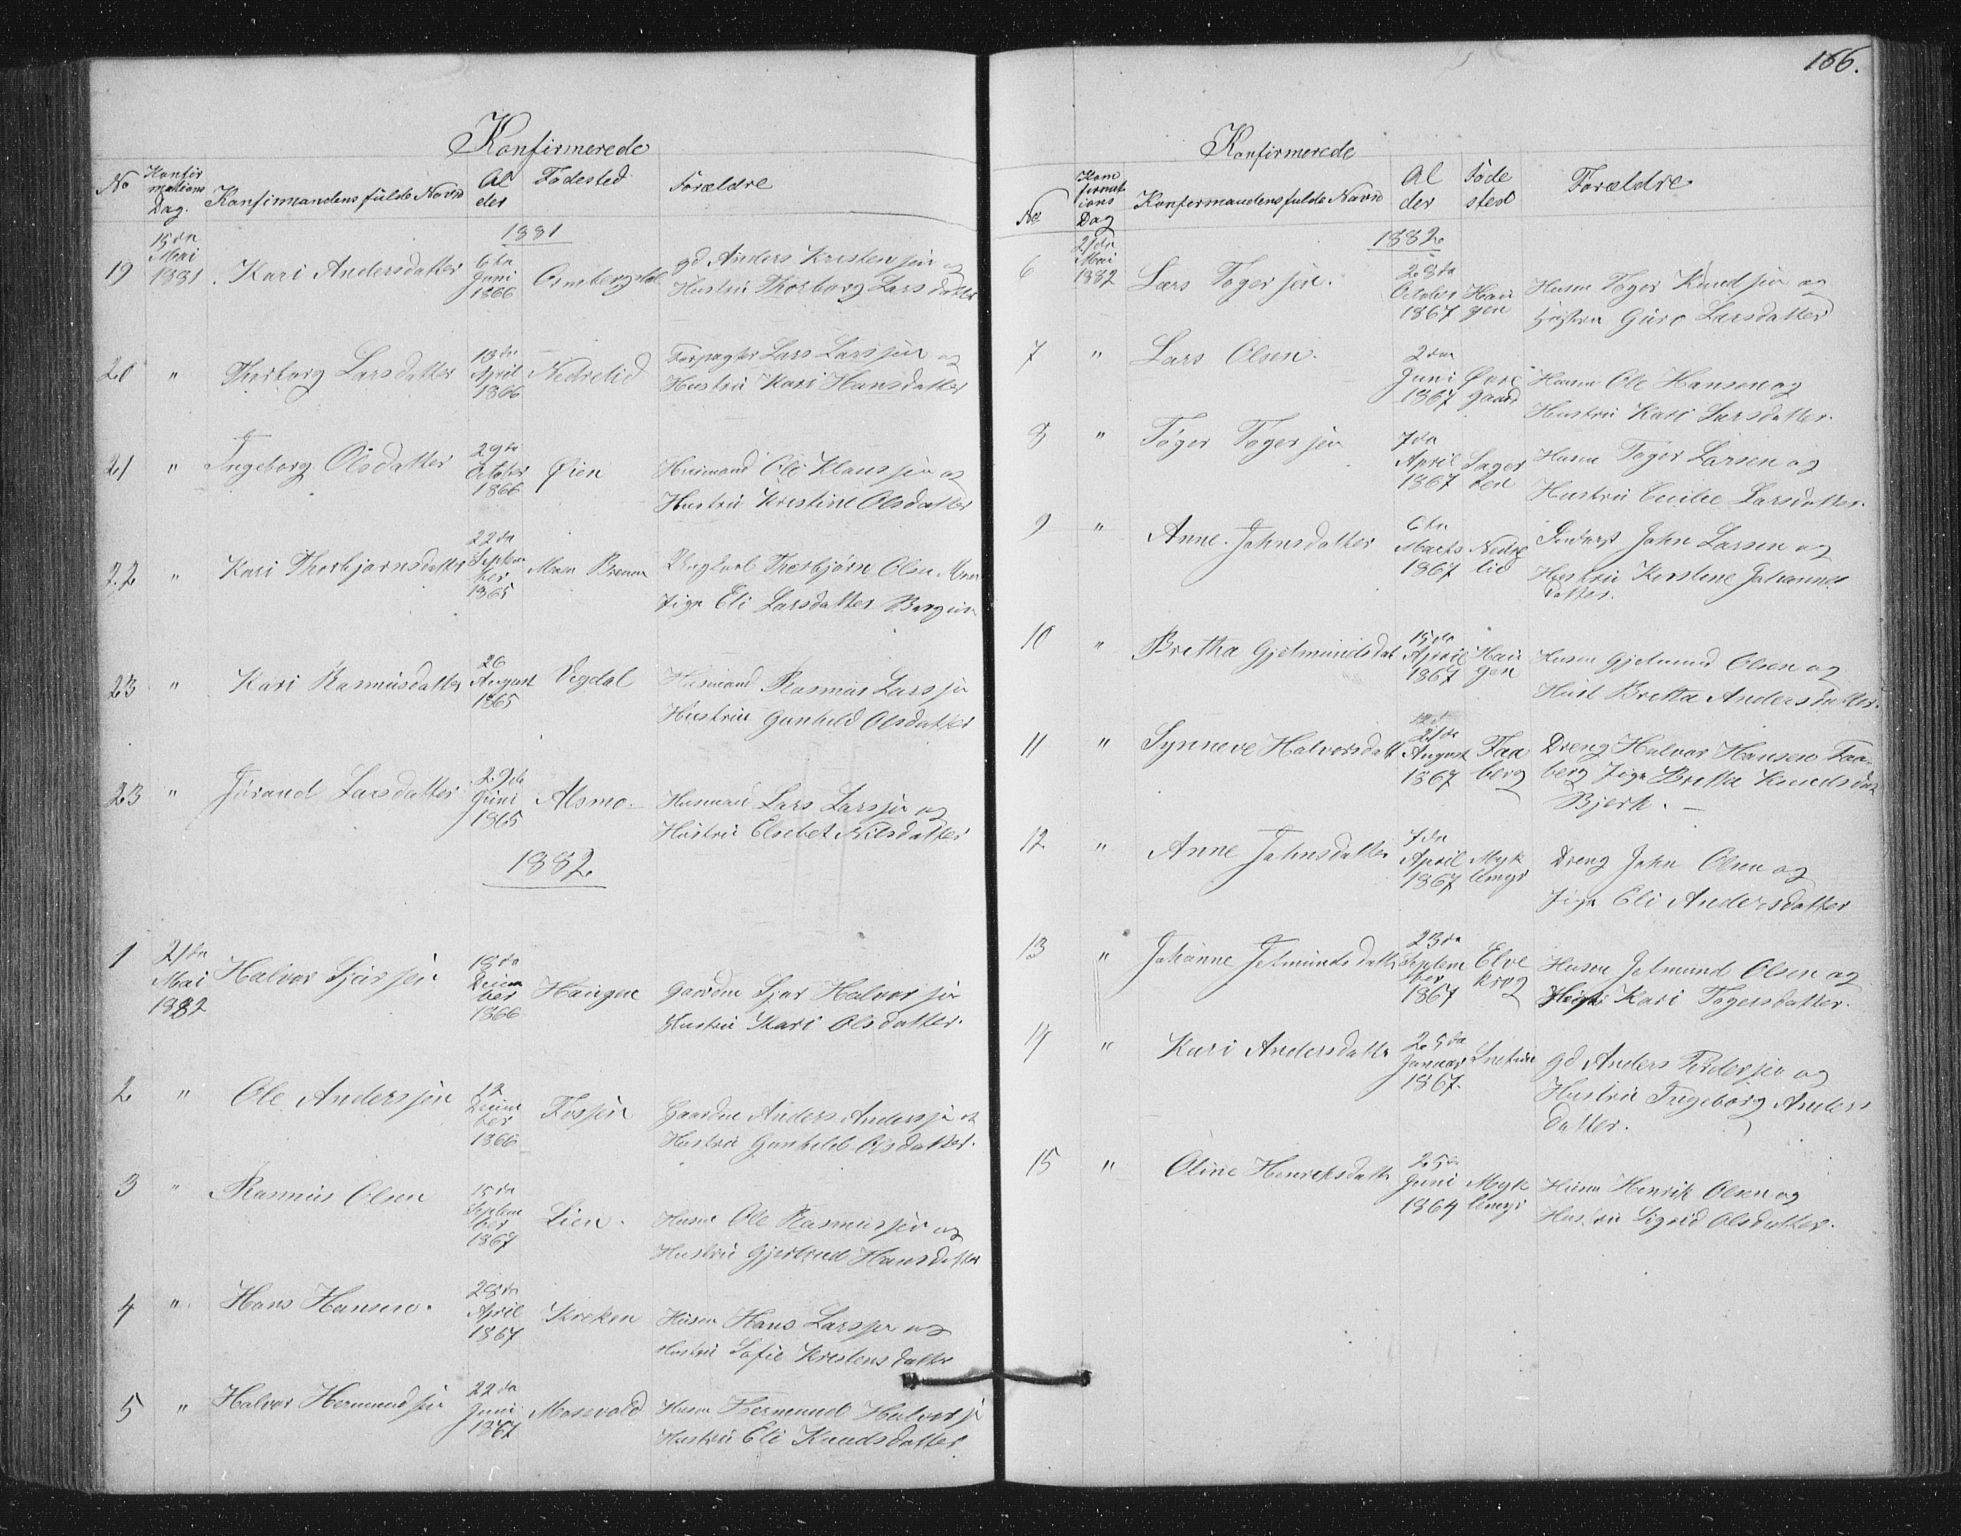 166.
Konfirmerede
No
Konfir
mations
Dag.
Konfirmandens fulde Navn
Al
der
Fødested
Forældre
1881
19
15de
Mai
1881
Kari Andersdatter
6te
Juni
1866
gd Anders Kristensen og
Hustru Thorborg Larsdatter
20 " Thorborg Larsdatter
18de
April
1866
Nedrelid
Forpagter Lars Larssen og
Hustru Kari Hansdatter
21 " Ingeborg Olsdatter
29de
October
1866
Øien
Husmand Ole Klaussen og
Hustru Kristine Olsdatter
22 " Kari Thorbjørnsdatter
22de
Septem
ber
1865
Moen Brenna
Ungkarl Thorbjørn Olsen Moen
Pige Eli Larsdatter
23 " Kari Rasmusdatter
26
August
1865
Vegdal
Husmand Rasmus Larssen
Hustru Gunhild Olsdatter
23 " Jørand Larsdatter
29de
Juni
1865
Alsmo.
Husmand Lars Larssen og
Hustru Elsebet Nilsdatter
1882
1
21de
Mai
1882
Halvor Sjursen
18de
Decem
ber
1866
Haugen
Gaardm Sjur Halvorsen
Hustru Kari Olsdatter.
2 " Ole Anderssen
12
Decem
ber
1866
Fossen
Gaardm Anders Anderssen og
Hustru Gunhild Olsdatter.
3 " Rasmus Olsen
15de
Septem
ber
1867
Lien.
Husm Ole Rasmussen og
Hustru Gjertrud Hansdatter
4 " Hans Hansen.
28de
April
1867
Kroken
Husm Hans Larssen og
Hustru Sofie Kristensdatter
5 " Halvor Hermundsen
22de
Juni
1867
Mosevold
Husm Hermund Halvorsen
Hustru Eli Knudsdatter
Konfirmerede
No
Kon
firmat
ions
Dag
Konfirmandens fulde Navn
Al
der
Føde
sted
Forældre
1882
6
21de
Mai
1882
Lars Togersen.
28de
October
1867
Hau
gen
Husm Toger Knudsen og
Hustru Guro Larsdatter
7 " Lars Olsen.
2den
Juni
1867
Øvre
gaard
Husm Ole Hansen og
Hustru Kari Larsdatter.
8 " Toger Togersen
7de
April
1867
Husm Toger Larsen og
Hustru Cecilie Larsdatter.
9 " Anne Johnsdatter
6te
Marts
1867
Nedre
lid
John Larsen og
Hustru Kerstene Johannes
datter.
10 " Bretha Gjetmundsdat
15de
April
1867
Hau
gen
Husm Gjetmund Olsen og
Hust Bretta Andersdatter.
11 " Synneve Halvorsdatt
21de
August
1867
Faa
berg
Dreng Halvor Hansen Faa-
berg Pige Bretta Knudsdat
Bjerk. –
12 " Anne Johnsdatter
7de
April
1867
Myk
lemyr
Dreng John Olsen og
Pige Eli Andersdatter
13 " Johanne Jetmundsdatt
23de
Septem
ber
1867
Elve
krog
Husm Jetmund Olsen og
Kari Togersdatter.
14 " Kari Andersdatter
25de
Januar
1867.
gd Anders Pedersen og
Hustru Ingeborg Anders
datter.
15 " Oline Henriksdatt
25de
Juni
1864
Myk
lemyr
Husm Henrik Olsen og
Hustru Sigrid Olsdatter.